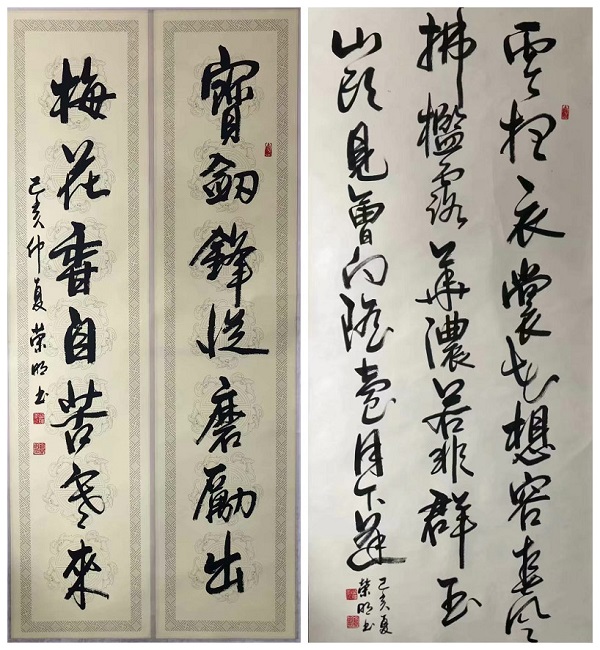 寶劍鋒從磨勵出
梅花香自苦寒來
己亥仲夏榮明書
雲想衣裳花想容春風
拂檻露華濃若非群玉
山頭見會向瑤臺月下逢
己亥夏
榮明書